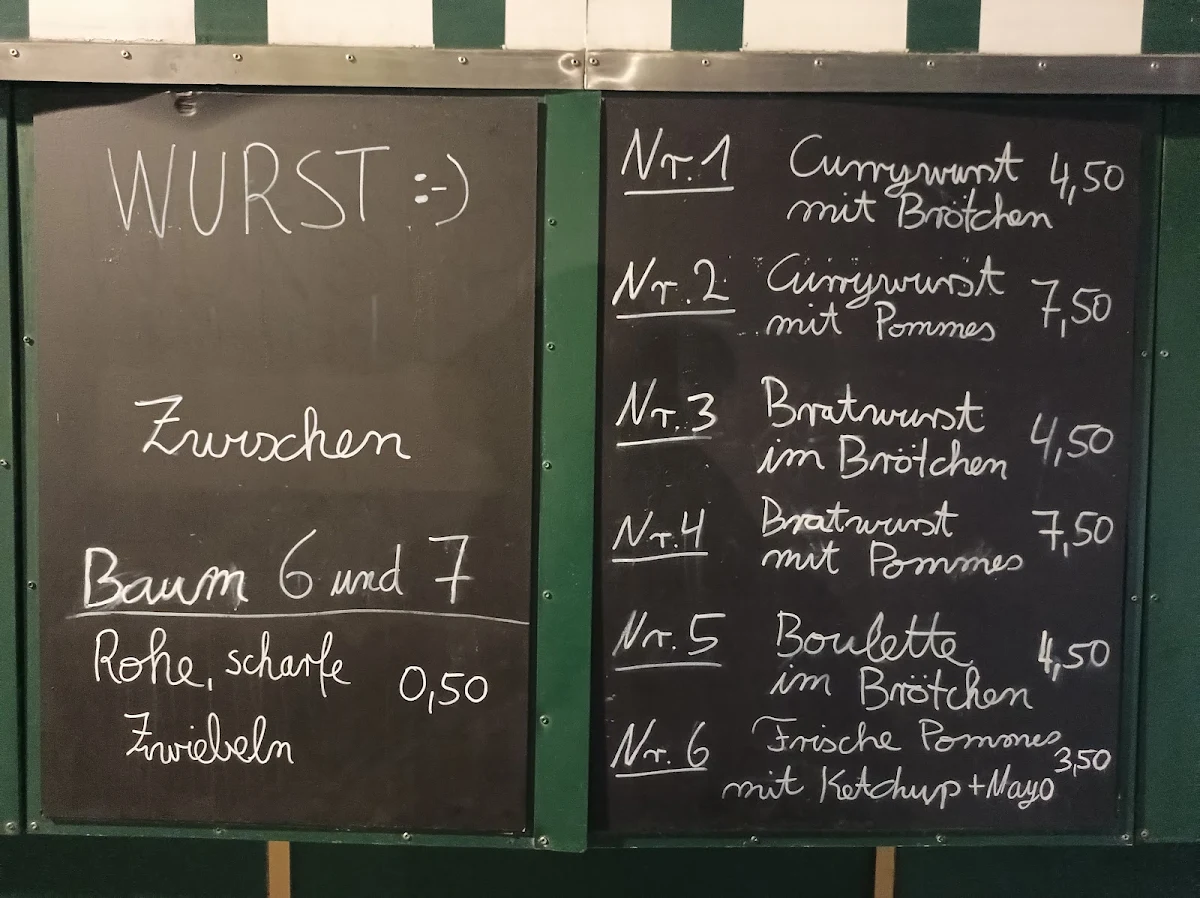 WURST :-)
Zwischen
Baum 6 und 7
Rohe, scharfe 0,50
Zwiebeln
Nr. 1 Currywurst 4,50
mit Brötchen
Nr. 2 Currywurst 7,50
mit Pommes
Nr. 3 Bratwurst 4,50
im Brötchen
Nr. 4 Bratwurst 7,50
mit Pommes
Nr. 5 Boulette 4,50
im Brötchen
Nr. 6 Frische Pommes 3,50
mit Ketchup + Mayo